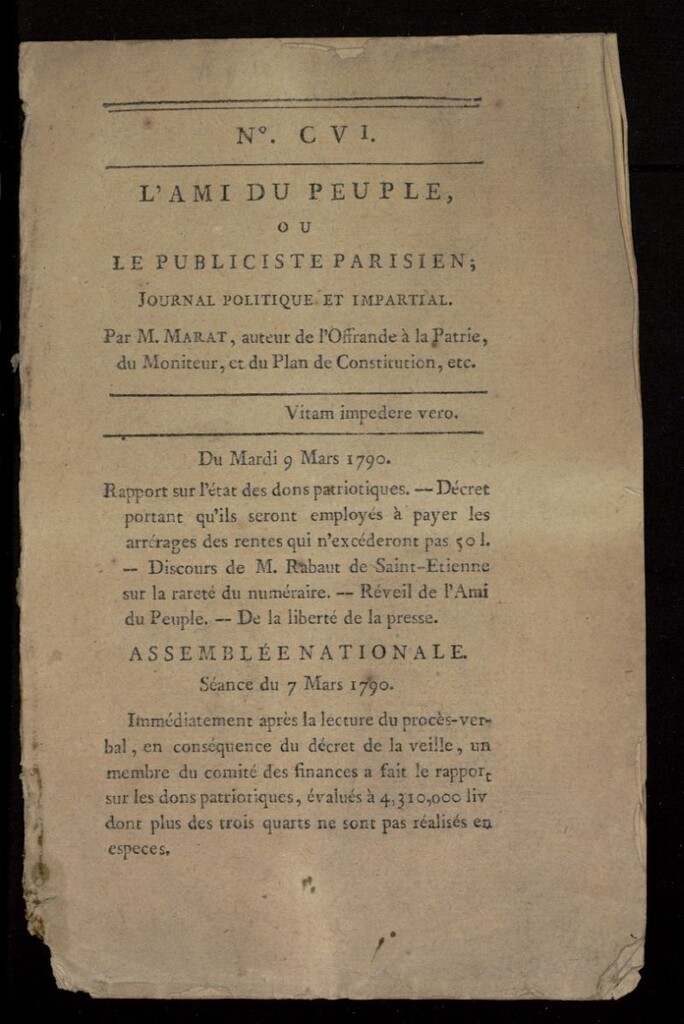 Nº. CVI.
L'AMI DU PEUPLE,
OU
LE PUBLICISTE PARISIEN;
JOURNAL POLITIQUE ET IMPARTIAL.
Par M. MARAT, auteur de l'Offrande à la Patrie,
du Moniteur, et du Plan de Constitution, etc.
Vitam impedere vero.
Du Mardi 9 Mars 1790.
Rapport sur l'état des dons patriotiques. — Décret
portant qu'ils seront employés à payer les
arrérages des rentes qui n'excéderont pas 50 l.
— Discours de M. Rabaut de Saint-Etienne
sur la rareté du numéraire. — Réveil de l'Ami
du Peuple. — De la liberté de la presse.
ASSEMBLÉE NATIONALE.
Séance du 7 Mars 1790.
Immédiatement après la lecture du procès-ver-
bal, en conséquence du décret de la veille, un
membre du comité des finances a fait le rapport
sur les dons patriotiques, évalués à 4,310,000 liv
dont plus des trois quarts ne sont pas réalisés en
especes.